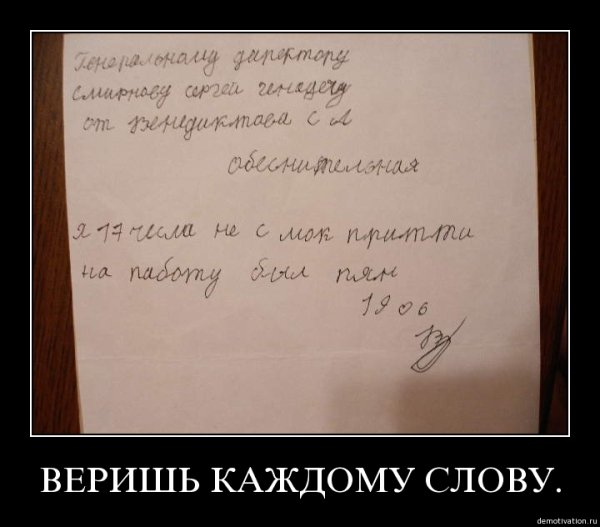 Генеральному директору
Смирнову сергей генадечу
от Венедиктова С А
обеснительная
я 17 числа не с мок притти
на работу был пян
19 06
ВЕРИШЬ КАЖДОМУ СЛОВУ.
demotivation.ru